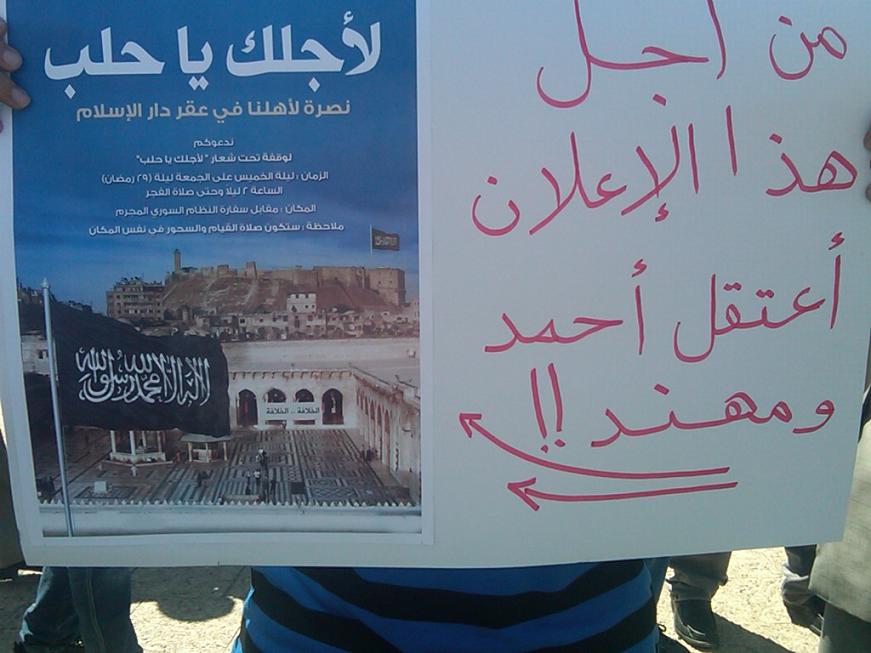 لأجلك يا حلب
نصرة لأهلنا في عقر دار الإسلام
ندعوكم
لوقفة تحت شعار "لأجلك يا حلب"
الزمان : ليلة الخميس على الجمعة ليلة (٢٩ رمضان)
الساعة ٢ ليلا وحتى صلاة الفجر
المكان : مقابل سفارة النظام السوري المجرم
ملاحظة : ستكون صلاة القيام والسحور في نفس المكان
لا إله إلا الله محمد رسول الله
الخلافة .. الخلافة
من أجل
هذا الإعلان
أعتقل أحمد
ومهند !!